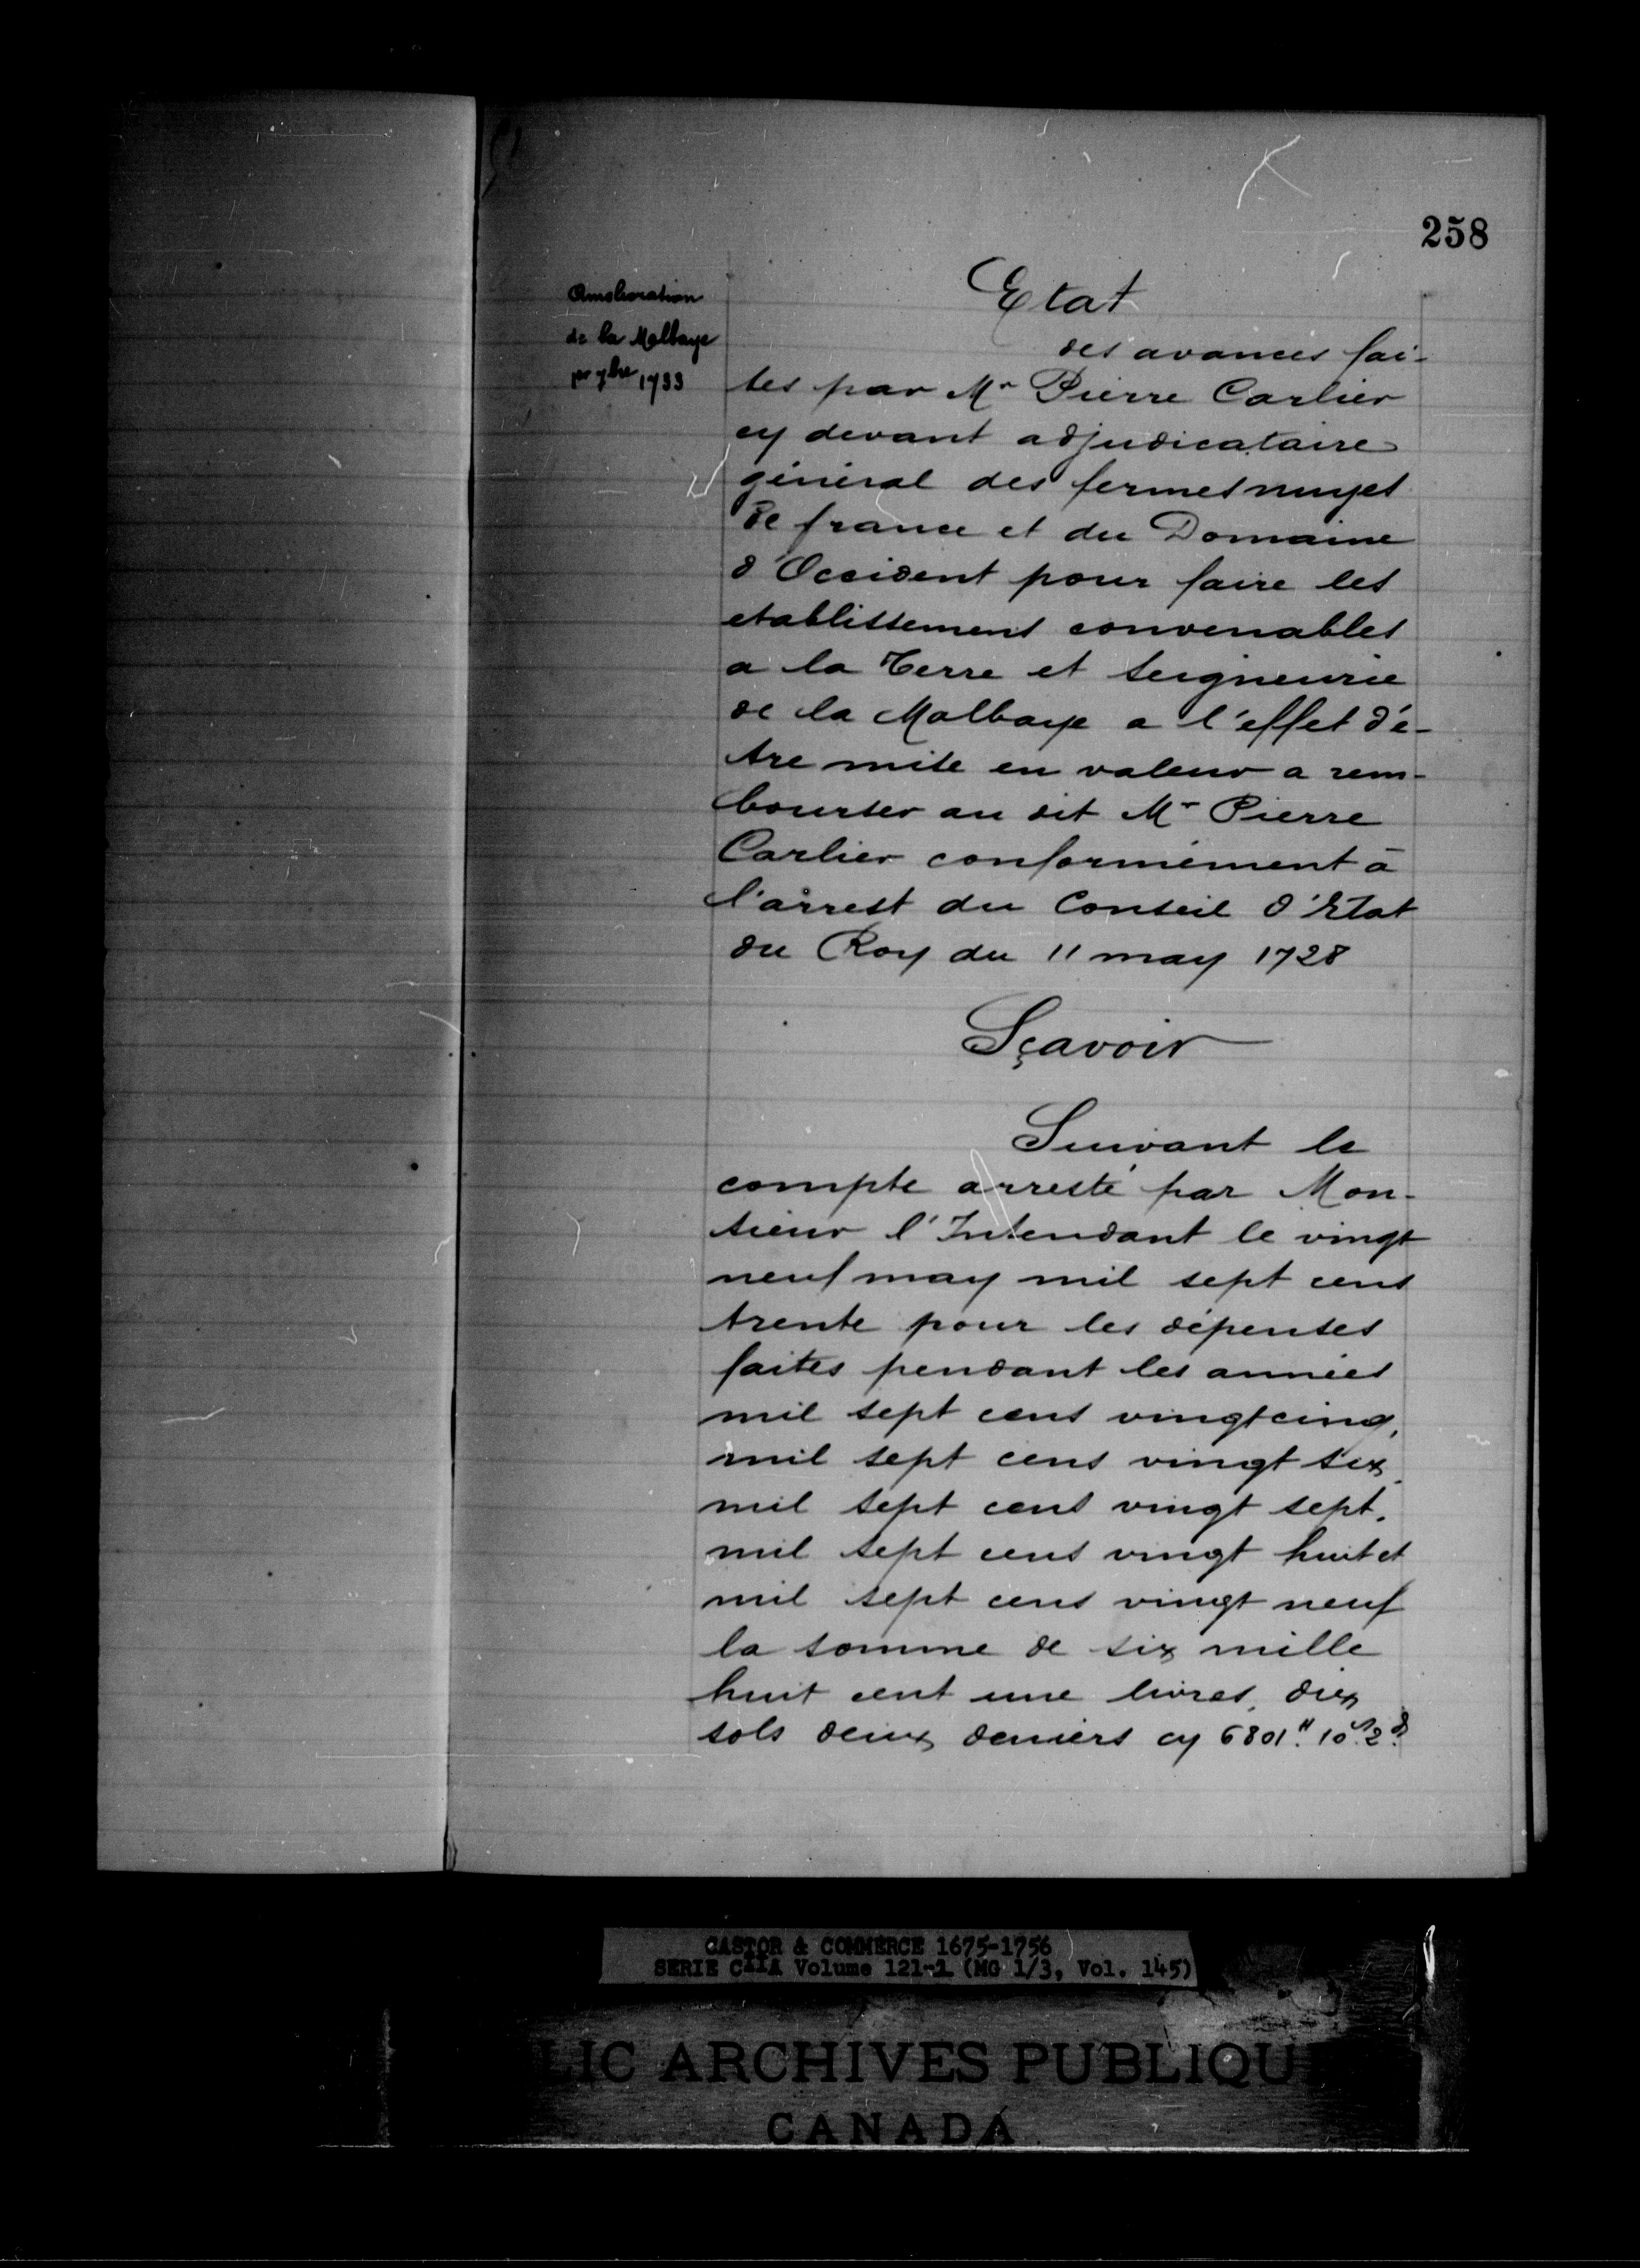 258
Amelioration
de la Malbaye
per 7bre 1733
Etat
des avances fai-
tes par Mr Pierre Carlier
cy devant adjudicataire
général des fermes unyes
de france et du Domaine
d'Occident pour faire les
etablissement convenables
a la Terre et seigneurie
de la Malbaye a l'effet d'é-
tre mise en valeur a rem-
bourser au dit Mr Pierre
Carlier conformément à
l'arrest du Conseil d'Etat
du Roy du 11 may 1728
Sçavoir
Suivant le
compte arresté par Mon-
sieur l'Intendant le vingt
neuf may mil sept cens
trente pour les dépenses
faites pendant les années
mil sept cens vingt cinq,
mil sept cens vingt six,
mil sept cens vingt sept,
mil sept cens vingt huit et
mil sept cens vingt neuf
la somme de six mille
huit cent une livres, dix
sols deux deniers cy 6801.ᴴ 10.ˢ 2.ᵈ
CASTOR & COMMERCE 1675-1756
SERIE C11A Volume 121-1 (MG 1/3, Vol. 145)
LIC ARCHIVES PUBLIQU
CANADA